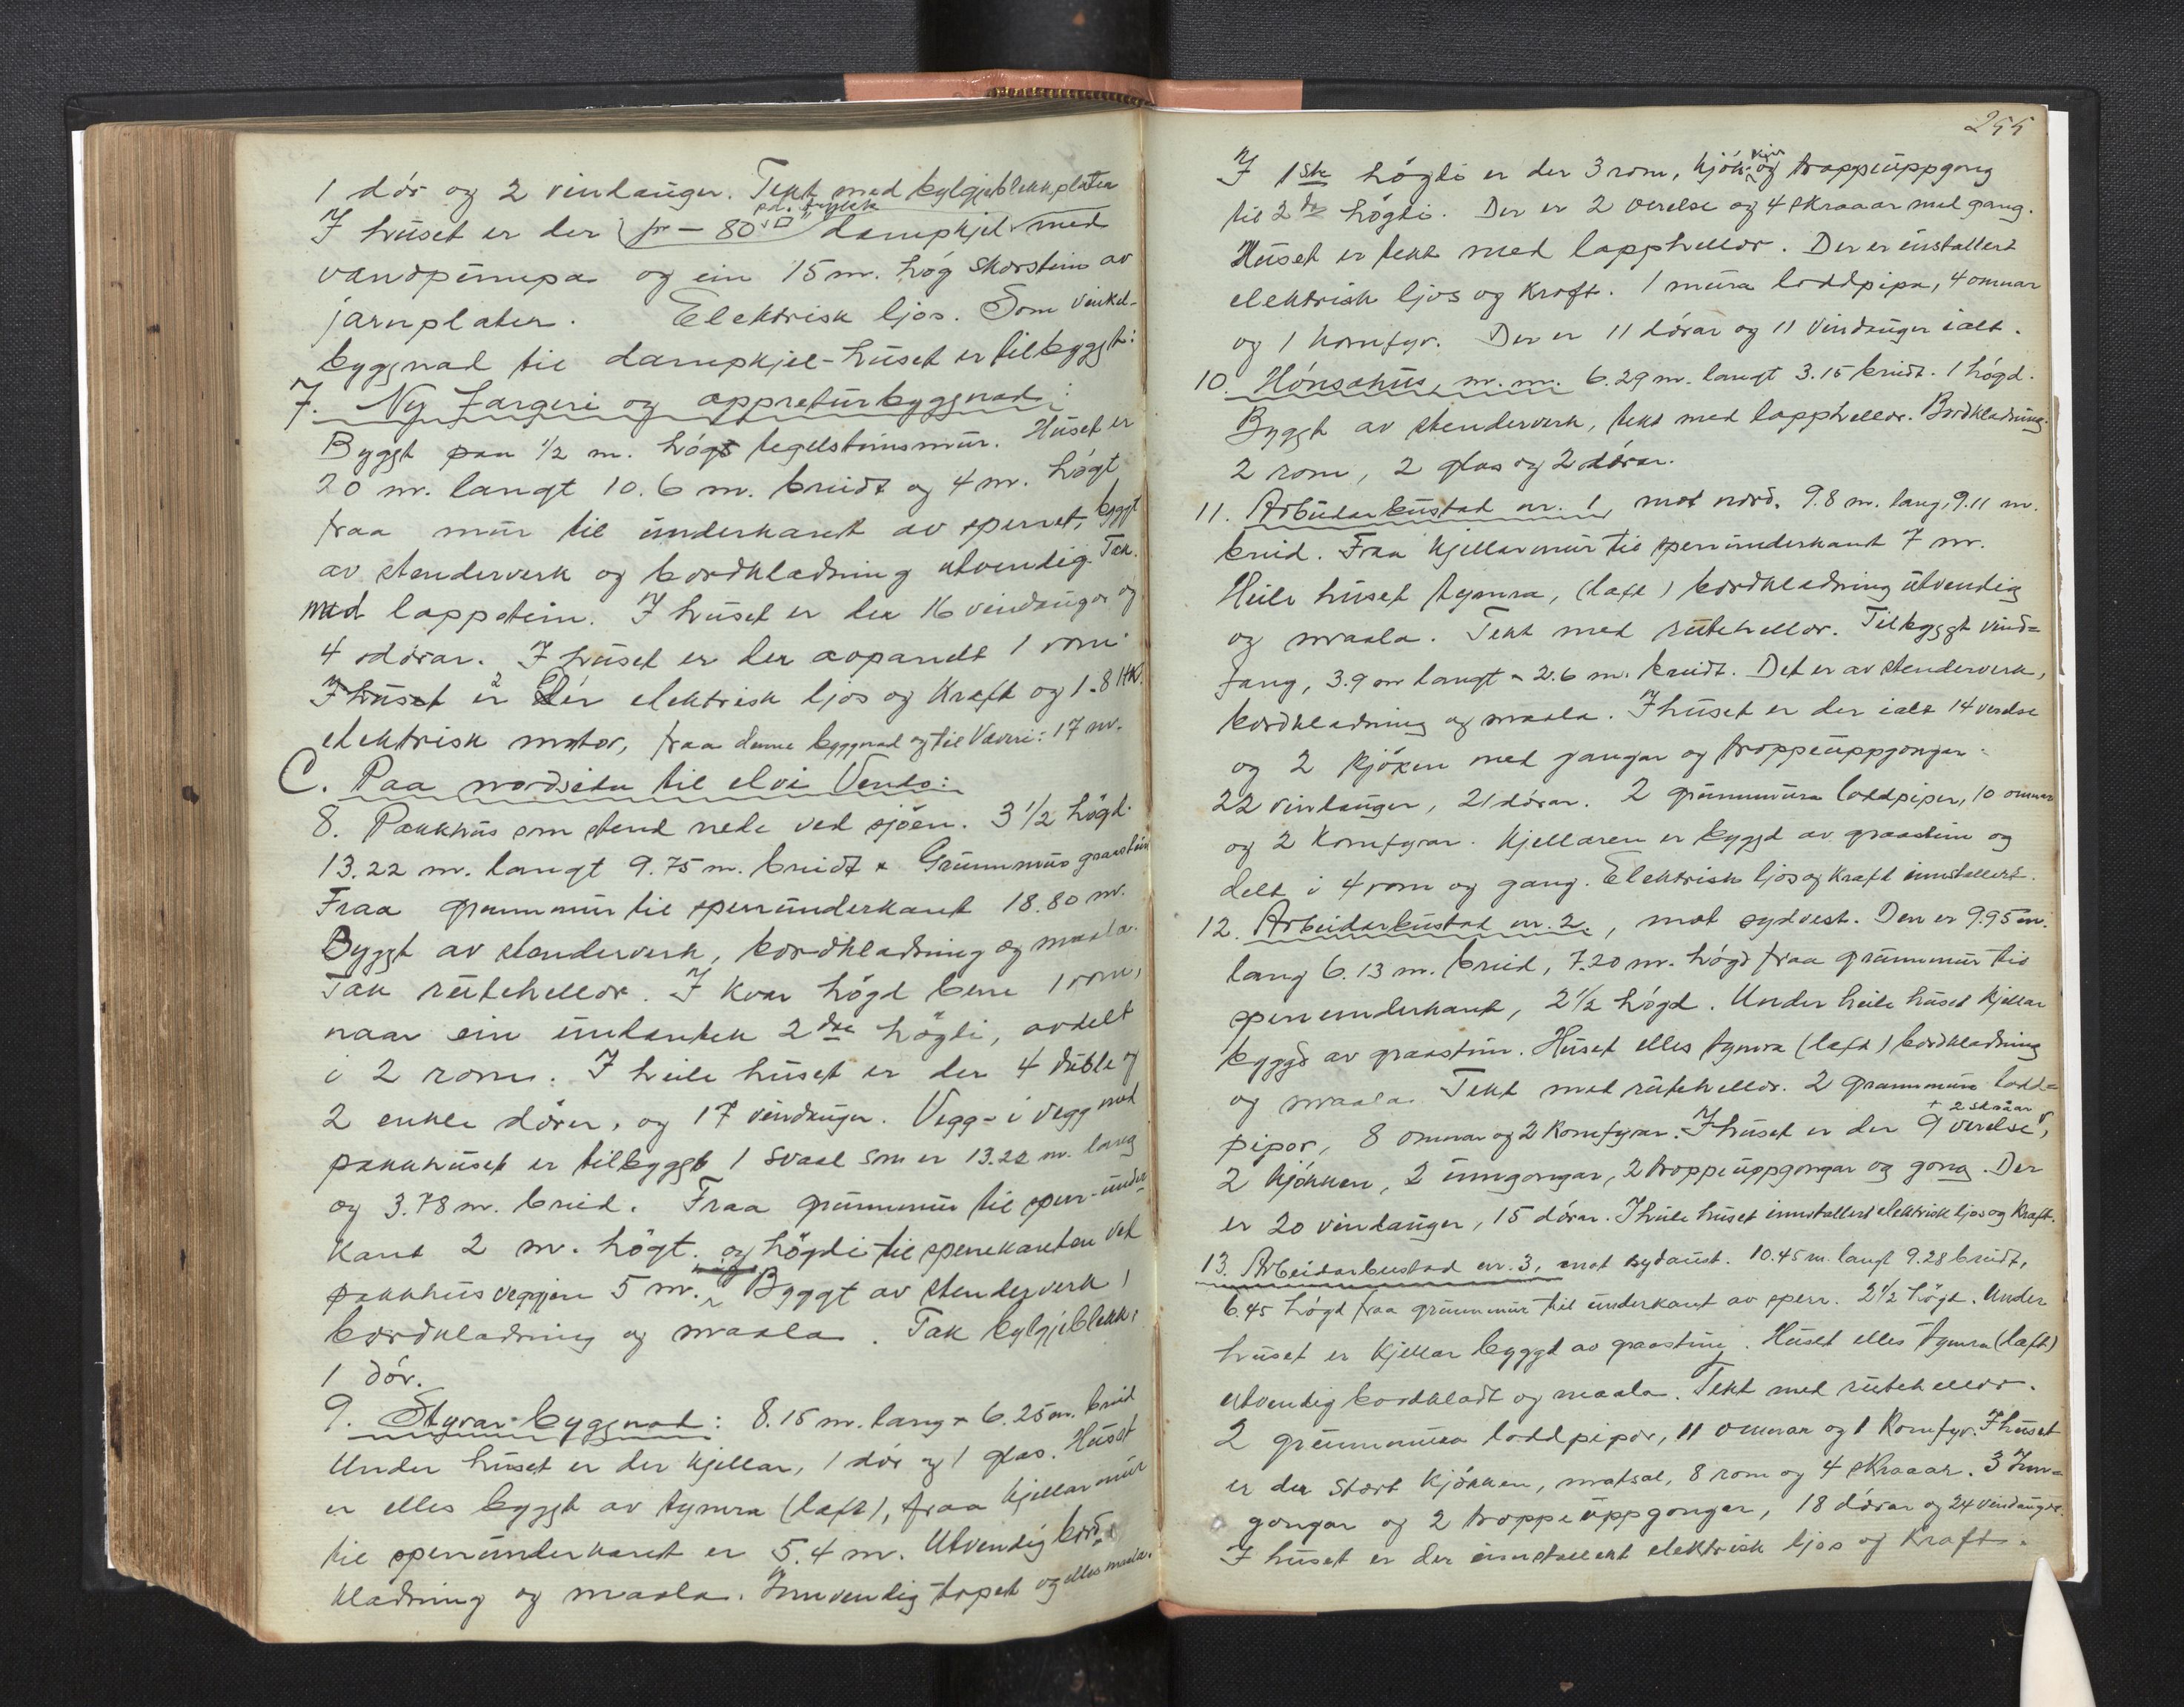 1 dör og 2 vindauger. Tekt med bylgjeblekkplater
I huset er der pr – 80 dampkjel med
vandpumpa og ein 15 m. høg skorstein av
jarnplater. Elektrisk ljos. Som vinkel-
byggnad til dampkjel-huset er tilbyggt:
7. Ny Fargeri og appreturbyggnad:
Byggt paa 1/2 m. högt tegelsteinsmur. Huset er
20 m. langt 10.6 m. breidt og 4 m. högt
fraa mur til underkant av sperret, byggt
av stenderverk og bordkladning utvendig. Tak
med lappstein. I huset er der 16 vindaugor og
4 dörar. I huset er der aapandt 1 rom
I huset er der elektrisk ljos og Kraft og 1.8 HK.
elektrisk motor, fraa denne byggnad og til Væveri: 17 m.
C. Paa nordsida til elvi
8. Pakkhus som stend nede ved sjöen. 3 1/2 högd.
13.22 m. langt 9.75 m. breidt x Grunnmur graastein
Fraa grunnmur til sperrunderkant 18.80 m.
Byggt av stenderverk, bordkladning og maala.
Tak rutehellor. I kvar högd berre 1 rom,
naar ein undantek 2dre högdi, avdelt
i 2 rom. I heile huset er der 4 duble og
2 enkle dörer, og 17 vindauger. Vegg-i vegg med
pakkhuset er tilbyggt 1 svael som er 13.22 m. lang
og 3.78 m. breid. Fraa grunnmur til sperr-under
kant 2 m. högt. og högdi til sperrekanten ved
pakkhusveggjen 5 m. Byggt av stenderverk,
bordkladning og maala. Tak bylgjeblekk:
1 dör.
9. Styrar-byggnad: 8.15 m. lang x 6.25 m. breid
Under huset er der kjellar, 1 dör og 1 glas. Huset
er elles byggt av tymra (laft), fraa kjellarmur
til sperrunderkant er 5.4 m. Utvendig bord-
kladning og maala. Innvendig tapet og elles maala.
255
I 1ste högdi er der 3 rom, kjök. og trappeuppgong
til 2dre högdi. Der er 2 verelse og 4 skraaar med gang.
Huset er tekt med lapphellor. Der er installert
elektrisk ljos og kraft. 1 mura loddpipa, 4 omnar
og 1 komfyr. Der er 11 dörar og 11 vindauger ialt.
10. Hönsahus, m.m. 6.29 m. langt 3.15 breidt. 1 högd.
Byggt av stenderverk, tekt med lapphellor. Bordkladning.
2 rom, 2 glas og 2 dörar.
11. Arbeidarbustad nr. 1, mot nord. 9.8 m. lang, 9.11 m.
breid. Fraa kjellarmur til sperrunderkant 7 m.
Heile huset tymra, (laft) bordkladning utvendig
og maala. Tekt med rutehellor. Tilbyggt vind=
fang, 3.9 m langt - 2.6 m. breidt. Det er av stenderverk,
bordkladning og maala. I huset er der ialt 14 verelse
og 2 kjöken med gangar og trappeuppgongar.
22 vindauger, 21 dörar. 2 grunnmura loddpiper, 10 omnar
og 2 komfyrar. Kjellaren er byggd av graastein og
delt i 4 rom og gang. Elektrisk ljos og kraft innstallert.
12. Arbeidarbustad nr. 2, mot sydvest. Den er 9.95 m.
lang 6.13 m. breid, 7.20 m. högd fraa grunnmur til
sperrunderkant, 2 1/2 högd. Under heile huset kjellar
byggd av graastein. Huset elles tymra (laft) bordkladning
og maala. Tekt med rutehellor. 2 grunnmura lodd=
pipor, 8 omnar og 2 komfyrar. I huset er der 9 verelse + 2 skraar,
2 kjökken, 2 inngongar, 2 trappeuppgongar og gong. Der
er 20 vindauger, 15 dörar. I heile huset innstallert elektrisk ljos og kraft.
13. Arbeidarbustad nr. 3, mot sydaust. 10.45 m. langt 9.28 breidt,
6.45 högd fraa grunnmur til underkant av sperr. 2 1/2 högd. Under
huset er kjellar byggd av graastein. Huset elles tymra (laft)
utvendig bordkladt og maala. Tekt med rutehellor.
2 grunnmura loddpipor, 11 omnar og 1 komfyr. I huset
er der stort kjökken, matsal, 8 rom og 4 skraaar. 3 Inn=
gongar og 2 trappeuppgongar, 18 dörar og 24 vindauger.
I huset er der innstallert elektrisk ljos og kraft.